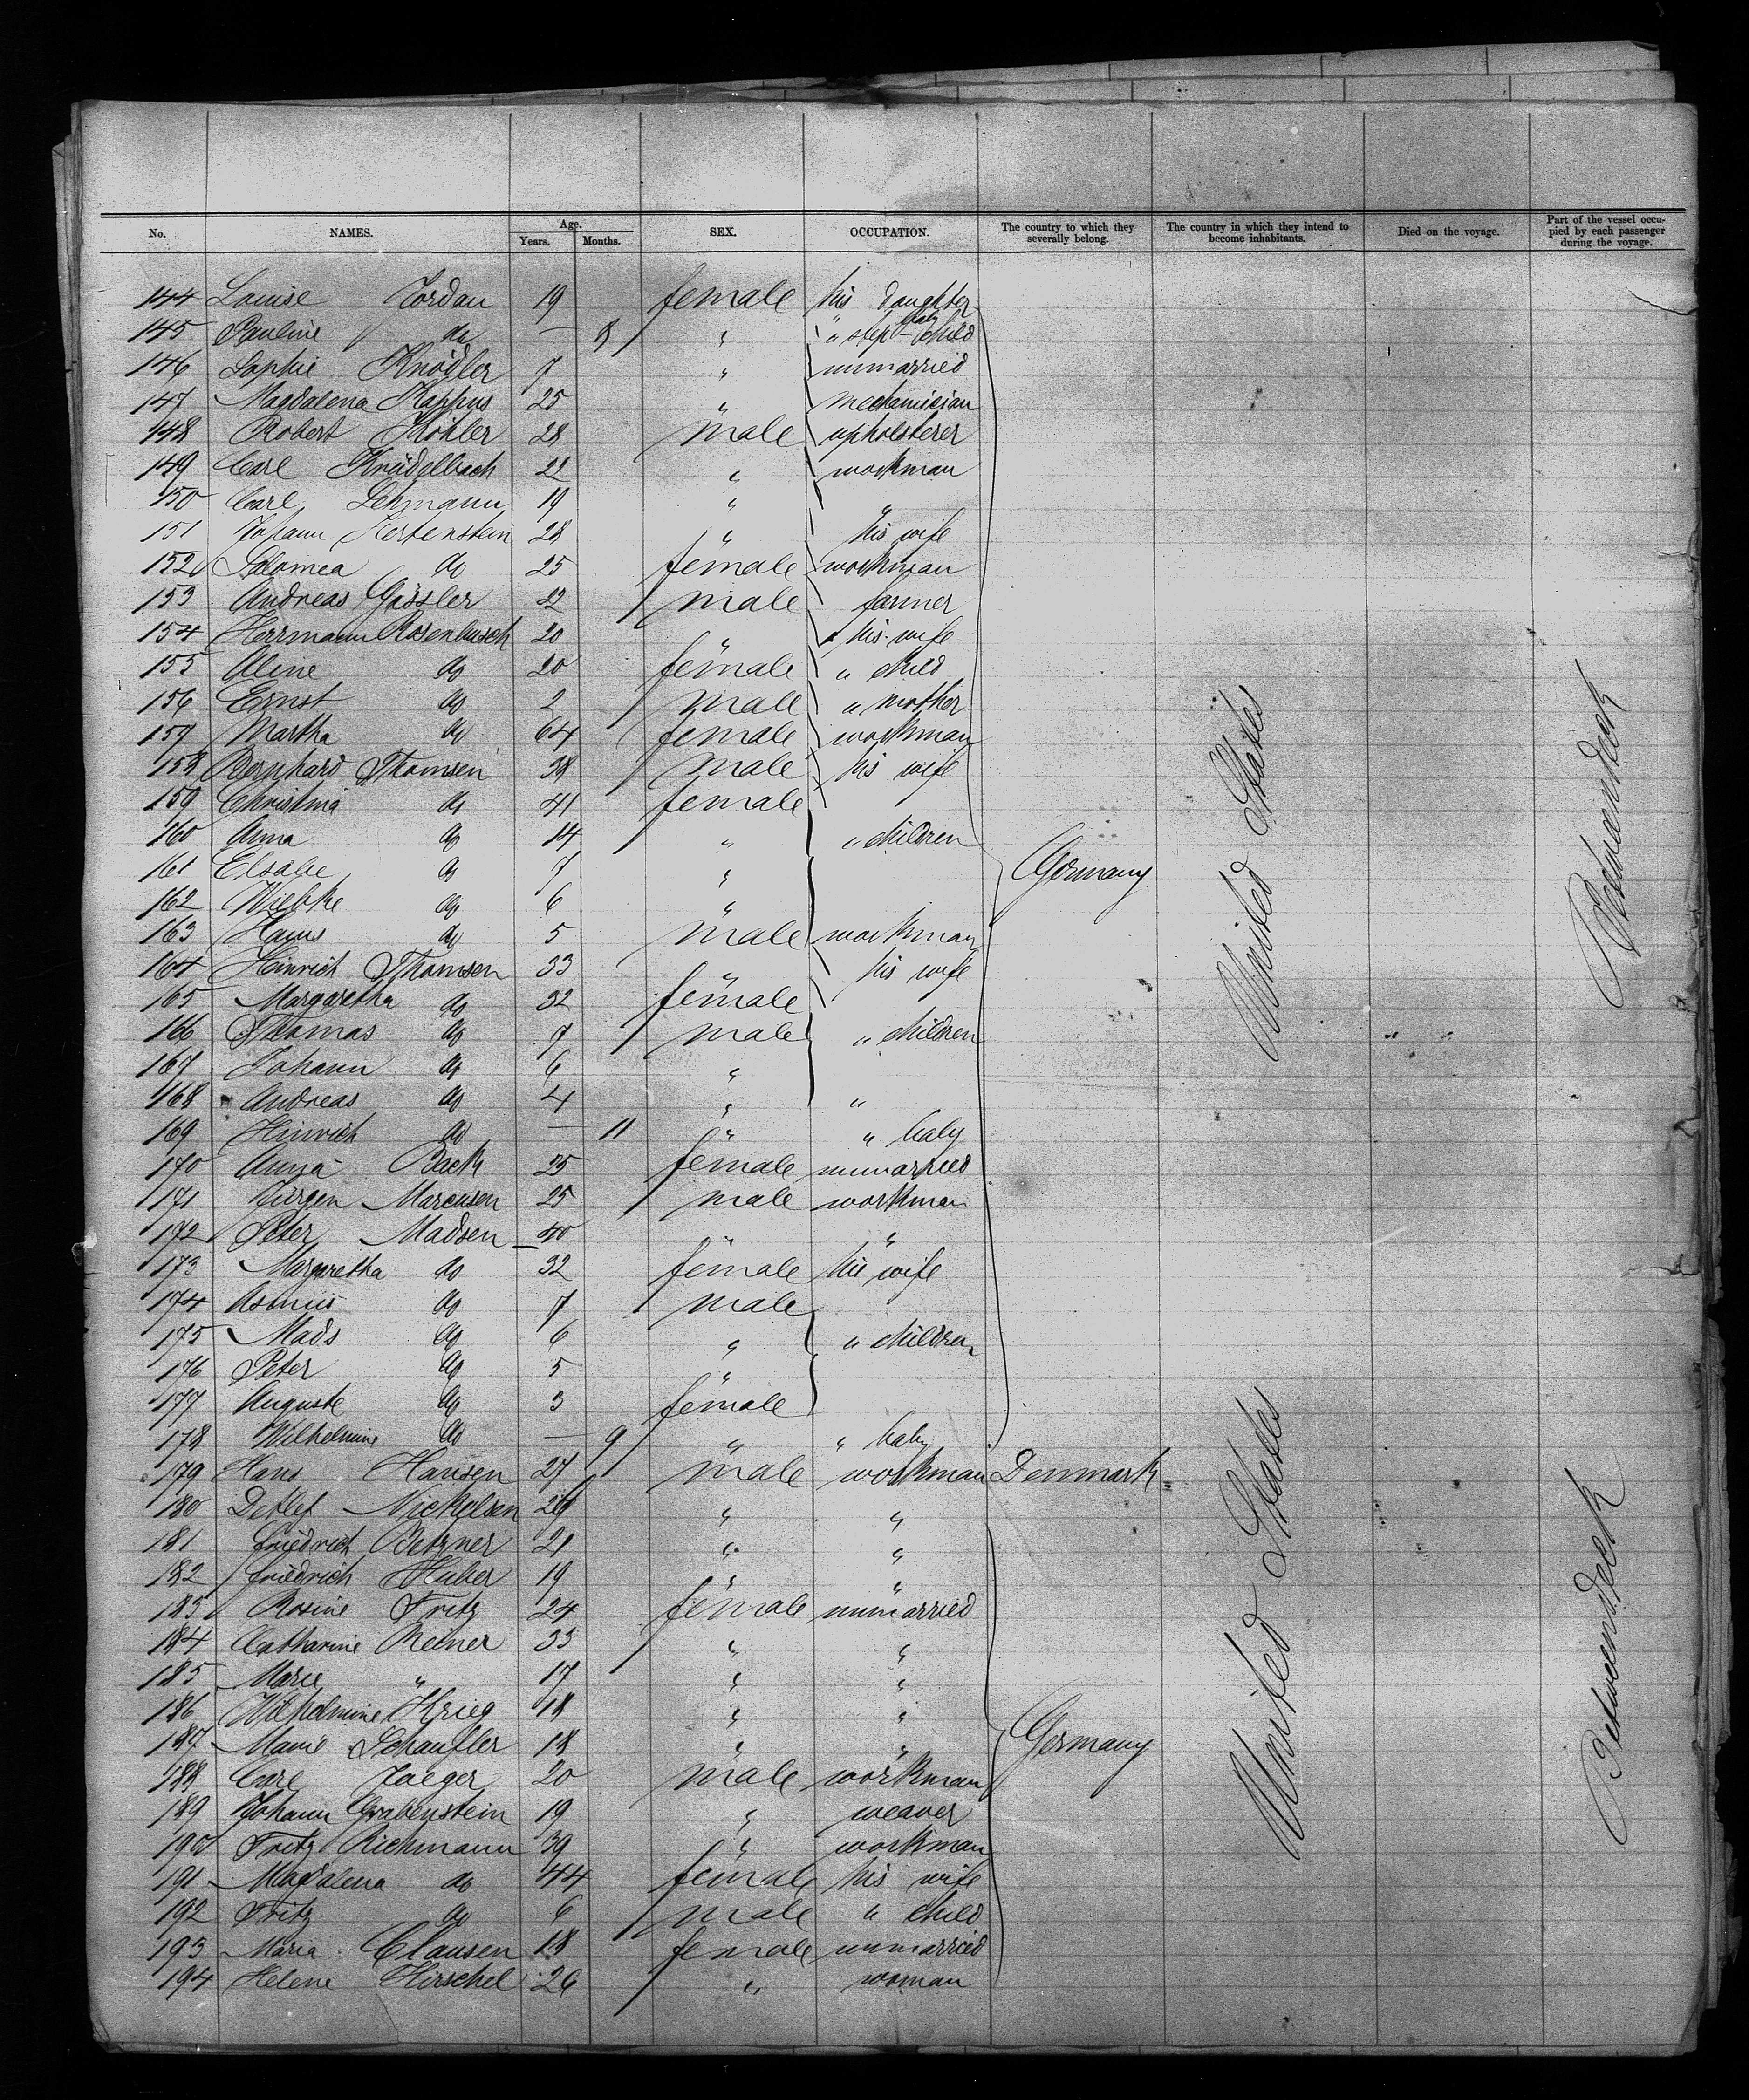 No. NAMES. Age. Years. Months. SEX. OCCUPATION. The country to which they severally belong. The country in which they intend to become inhabitants. Died on the voyage. Part of the vessel occupied by each passenger during the voyage.
144 Louise Jordan 19 female his daughter
145 Pauline do — 8 " " step-child baby
146 Sophie Knödler 7 " unmarried
147 Magdalena Kappus 25 " mechanician
148 Robert Köhler 28 male upholsterer
149 Carl Knüdelbach 22 " workman
150 Carl Lehmann 19 " "
151 Johann Hertenstein 28 " his wife
152 Salomea do 25 female workman
153 Andreas Gässler 22 male farmer
154 Herrmann Rosenbusch 20 " his wife
155 Aline do 20 female " child
156 Ernst do 2 male " mother
157 Martha do 64 female workman
158 Bernhard Thomsen 38 male his wife
159 Christina do 41 female
160 Anna do 14 " " children
161 Elsabe do 7 "
162 Wiebke do 6 "
163 Hans do 5 male workman
164 Heinrich Thomsen 33 his wife
165 Margaretha do 32 female
166 Thomas do 7 male " children
167 Johann do 6 "
168 Andreas do 4 " "
169 Hinrich do — 11 " " baby
170 Anna Back 25 female unmarried
171 Jürgen Marcusen 25 male workman
172 Peter Madsen 40 " "
173 Margaretha do 32 female his wife
174 Asmus do 7 male
175 Mads do 6 " " children
176 Peter do 5 "
177 Auguste do 3 female
178 Wilhelmine do — 9 " " baby
Germany
United States
Betweendeck
179 Hans Hansen 27 male workman Denmark
180 Detlef Nickelsen 29 " "
181 Friedrich Betzner 21 " "
182 Friedrich Huber 19 " "
183 Rosine Fritz 24 female unmarried
184 Catharine Reiner 33 " "
185 Marie " 17 " "
186 Wilhelmine Krieg 18 " "
187 Marie Schaufler 18 " "
188 Carl Jaeger 20 male workman
189 Johann Grabenstein 19 " weaver
190 Fritz Richmann 39 " workman
191 Magdalena do 44 female his wife
192 Fritz do 6 male " child
193 Maria Clausen 18 female unmarried
194 Helene Hirschel 26 " woman
Germany
United States
Betweendeck